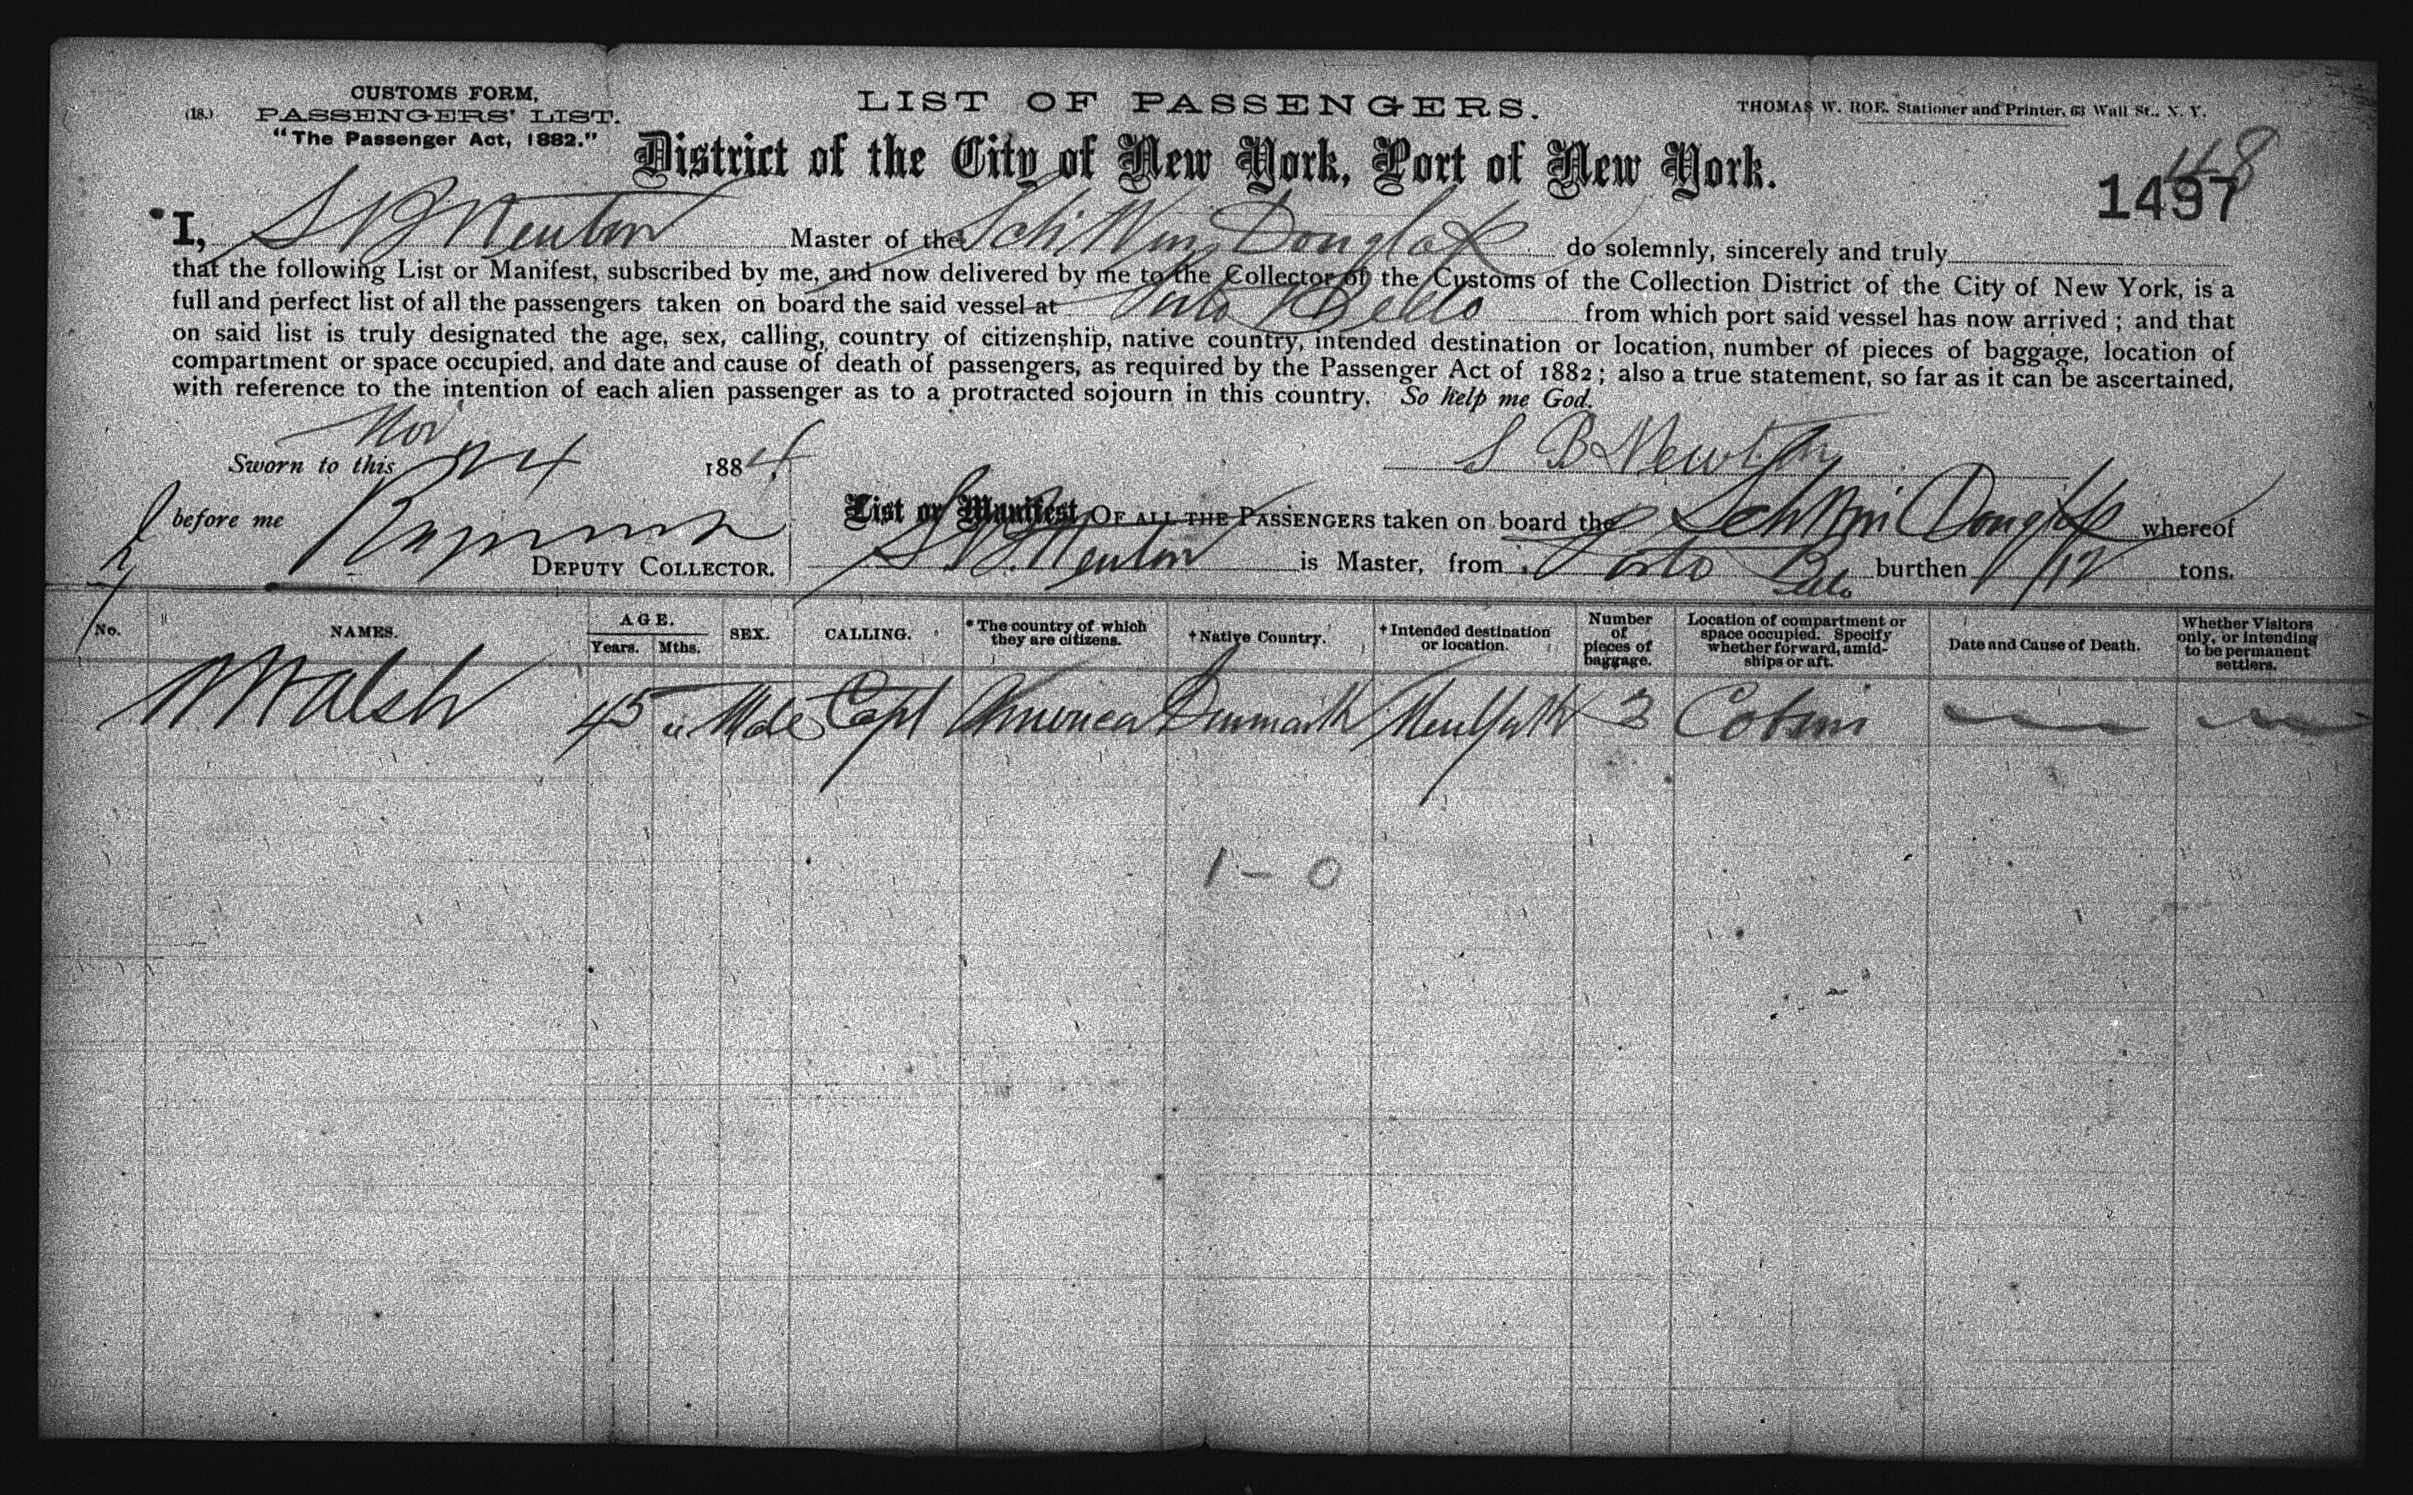 CUSTOMS FORM,
(18.) PASSENGERS' LIST.
"The Passenger Act, 1882."
LIST OF PASSENGERS.
THOMAS W. ROE, Stationer and Printer, 63 Wall St., N. Y.
District of the City of New York, Port of New York.
48
1497
I, S B Newton Master of the Sch Wm Douglas do solemnly, sincerely and truly
that the following List or Manifest, subscribed by me, and now delivered by me to the Collector of the Customs of the Collection District of the City of New York, is a
full and perfect list of all the passengers taken on board the said vessel at Porto Bello from which port said vessel has now arrived; and that
on said list is truly designated the age, sex, calling, country of citizenship, native country, intended destination or location, number of pieces of baggage, location of
compartment or space occupied, and date and cause of death of passengers, as required by the Passenger Act of 1882; also a true statement, so far as it can be ascertained,
with reference to the intention of each alien passenger as to a protracted sojourn in this country. So help me God.
Sworn to this Nov 24 1884, S B Newton
before me
DEPUTY COLLECTOR.
List or Manifest OF ALL THE PASSENGERS taken on board the Sch Wm Douglas whereof
S B Newton is Master, from Porto Bello burthen 112 tons.
No. NAMES. AGE. Years. Mths. SEX. CALLING. *The country of which they are citizens. †Native Country. †Intended destination or location. Number of pieces of baggage. Location of compartment or space occupied. Specify whether forward, amidships or aft. Date and Cause of Death. Whether Visitors only, or intending to be permanent settlers.
Walsh 45 " Male Capt America Denmark New York 3 Cabin
1 - 0